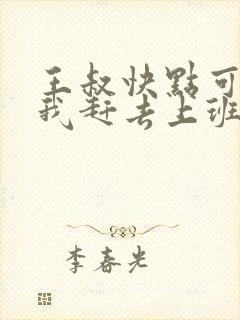 王叔快點可
我赶去上班
李春光